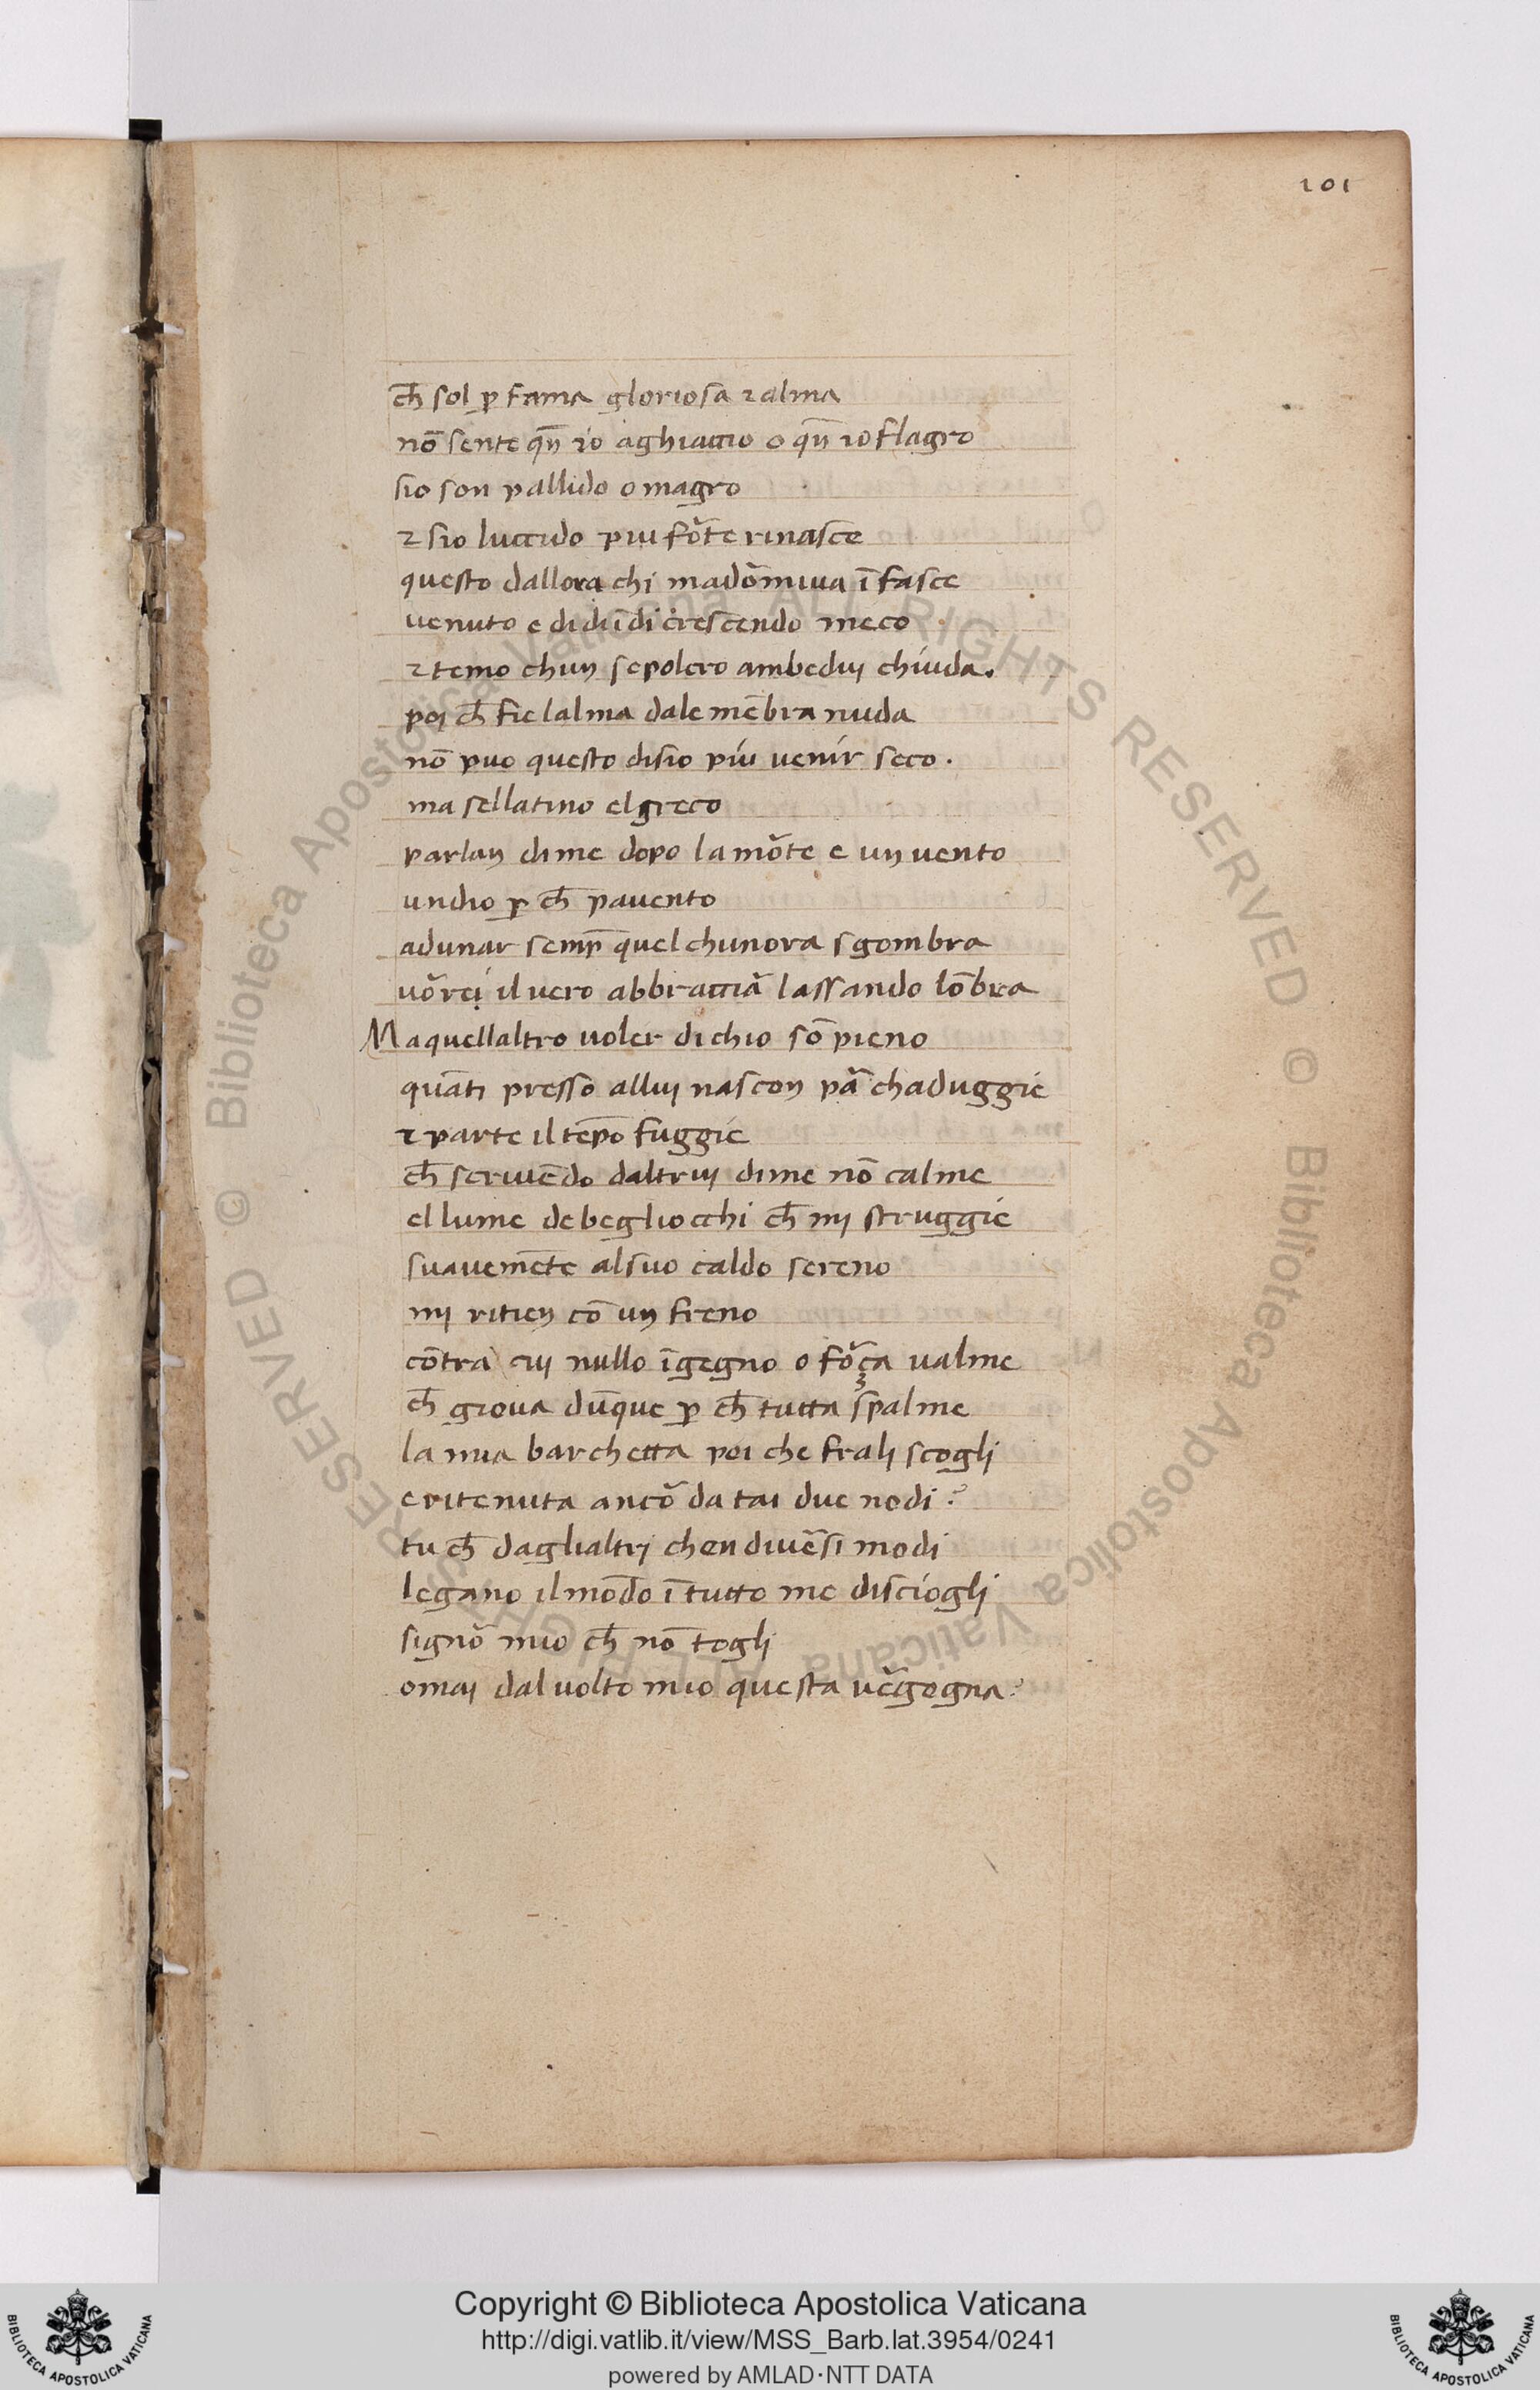 101
ch̄ sol ꝑ fama gloriosa ⁊ alma
nō sente qn̄ io aghiaccio o qn̄ io flagro
sio son pallido o magro
⁊ sio luccido piu fõte rinasce
questo dallora chi madõmiua ī fasce
venuto e di dī ī di crescendo meco
⁊ temo chun sepolcro ambeduj chiuda.
poj ch̄ fie lalma dale mēbra nuda
nō puo questo disio piu venir seco.
ma sellatino el greco
parlan di me dopo la mõte e un vento
undio ꝑ ch̄ pauento
adunar semp̄ quel chunora sgombra
võrej il uero abbracciã lassando lōbra
Ma quellaltro uoler di chio sō pieno
quāti presso alluj nascon pã chaduggie
⁊ parte il tēpo fuggie
ch̄ scriuēdo daltruj di me nō calme
el lume de begliocchi ch̄ mj struggie
suauemēte al suo caldo sereno
mj ritien cō un freno
cōtra cuj nullo īgegno o fõça ualme
ch̄ gioua dūque ꝑ ch̄ tutta spalme
la mia barchetta poi che fralj scogli
e ritenuta ancõ da tai due nodi?
tu ch̄ daglialtrj chen diuẽsi modi
legano il mōdo ī tutto me disciogli
signõ mio ch̄ nō toglj
omaj dal uolto mio questa uẽgogna?
Copyright © Biblioteca Apostolica Vaticana
http://digi.vatlib.it/view/MSS_Barb.lat.3954/0241
powered by AMLAD·NTT DATA